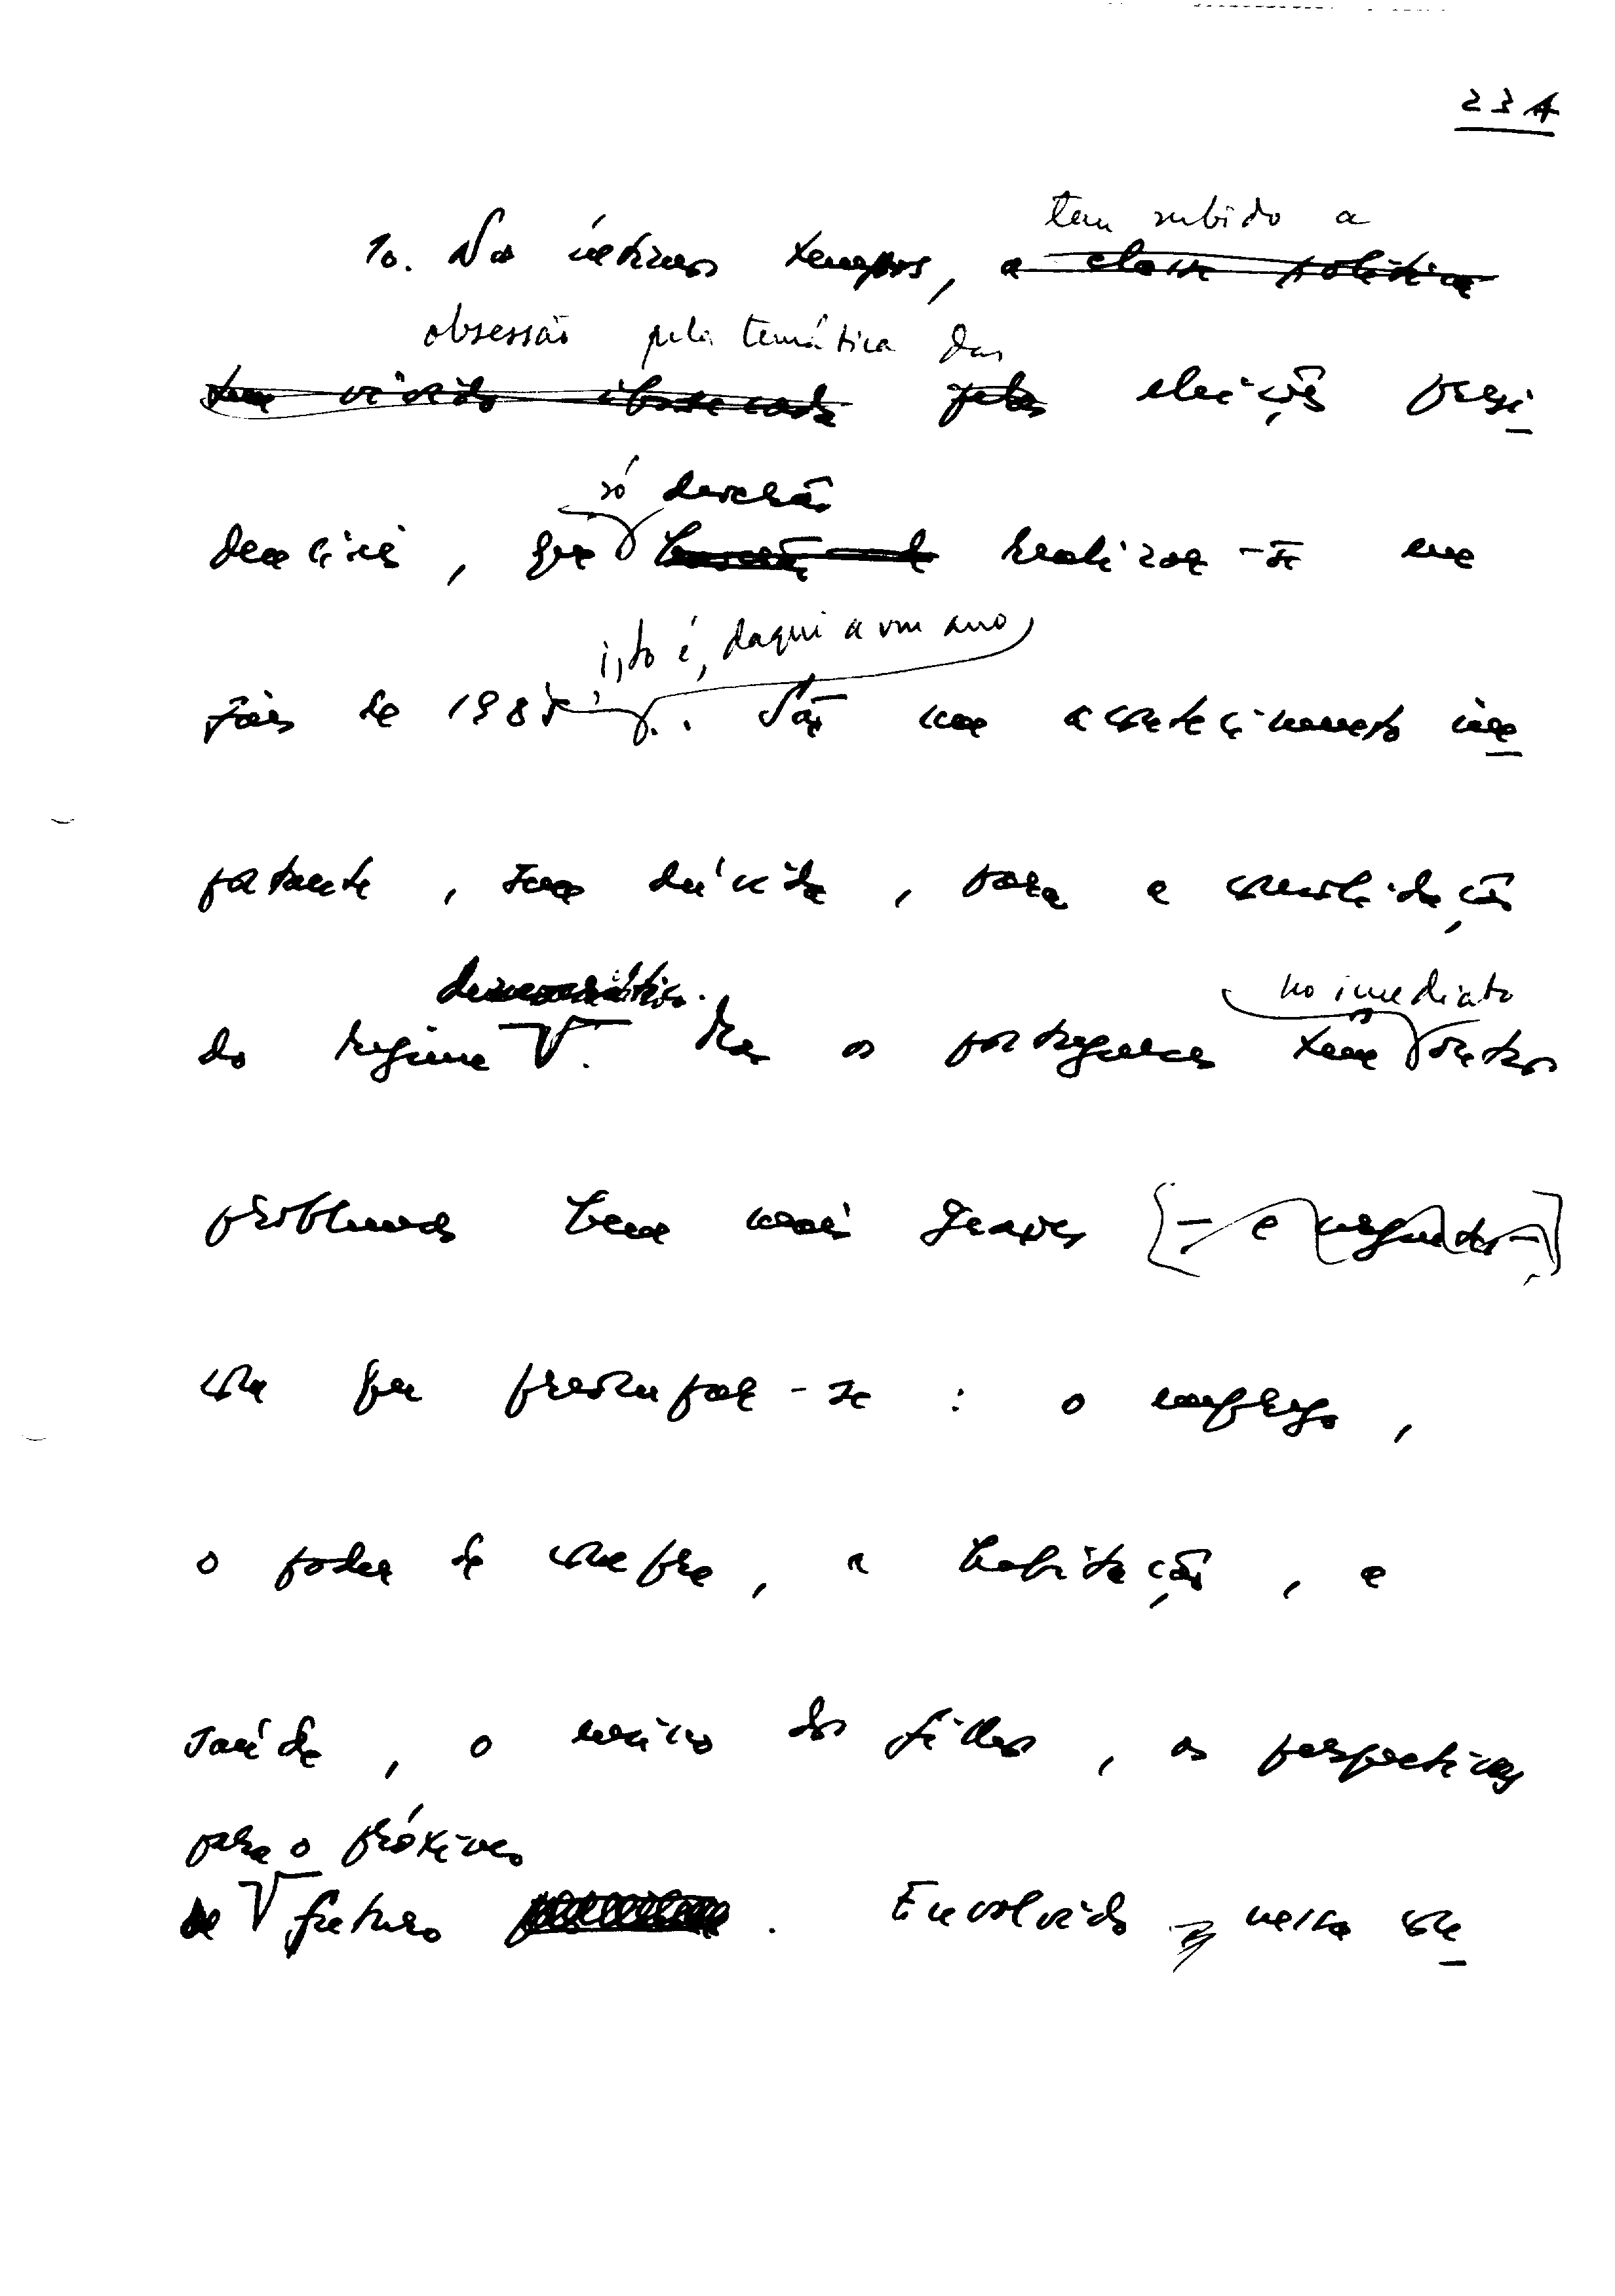 23A
tem subido a
10. Nos últimos tempos, a classe política
obsessão pela temática das
tem vivido obcecada pelas eleições presi
só deverão
denciais, que realizar-se em
isto é, daqui a um ano
fins de 1985. São um acontecimento im
portante, sem dúvida, para a consolidação
democrático. no imediato
do regime. Mas os portugueses têm outros
problemas bem mais graves [- e urgentes -]
com que preocupar-se : o emprego,
o poder de compra, a habitação, a
saúde, o ensino dos filhos, as perspectivas
para o próximo
de futuro. Envolvido nessa con